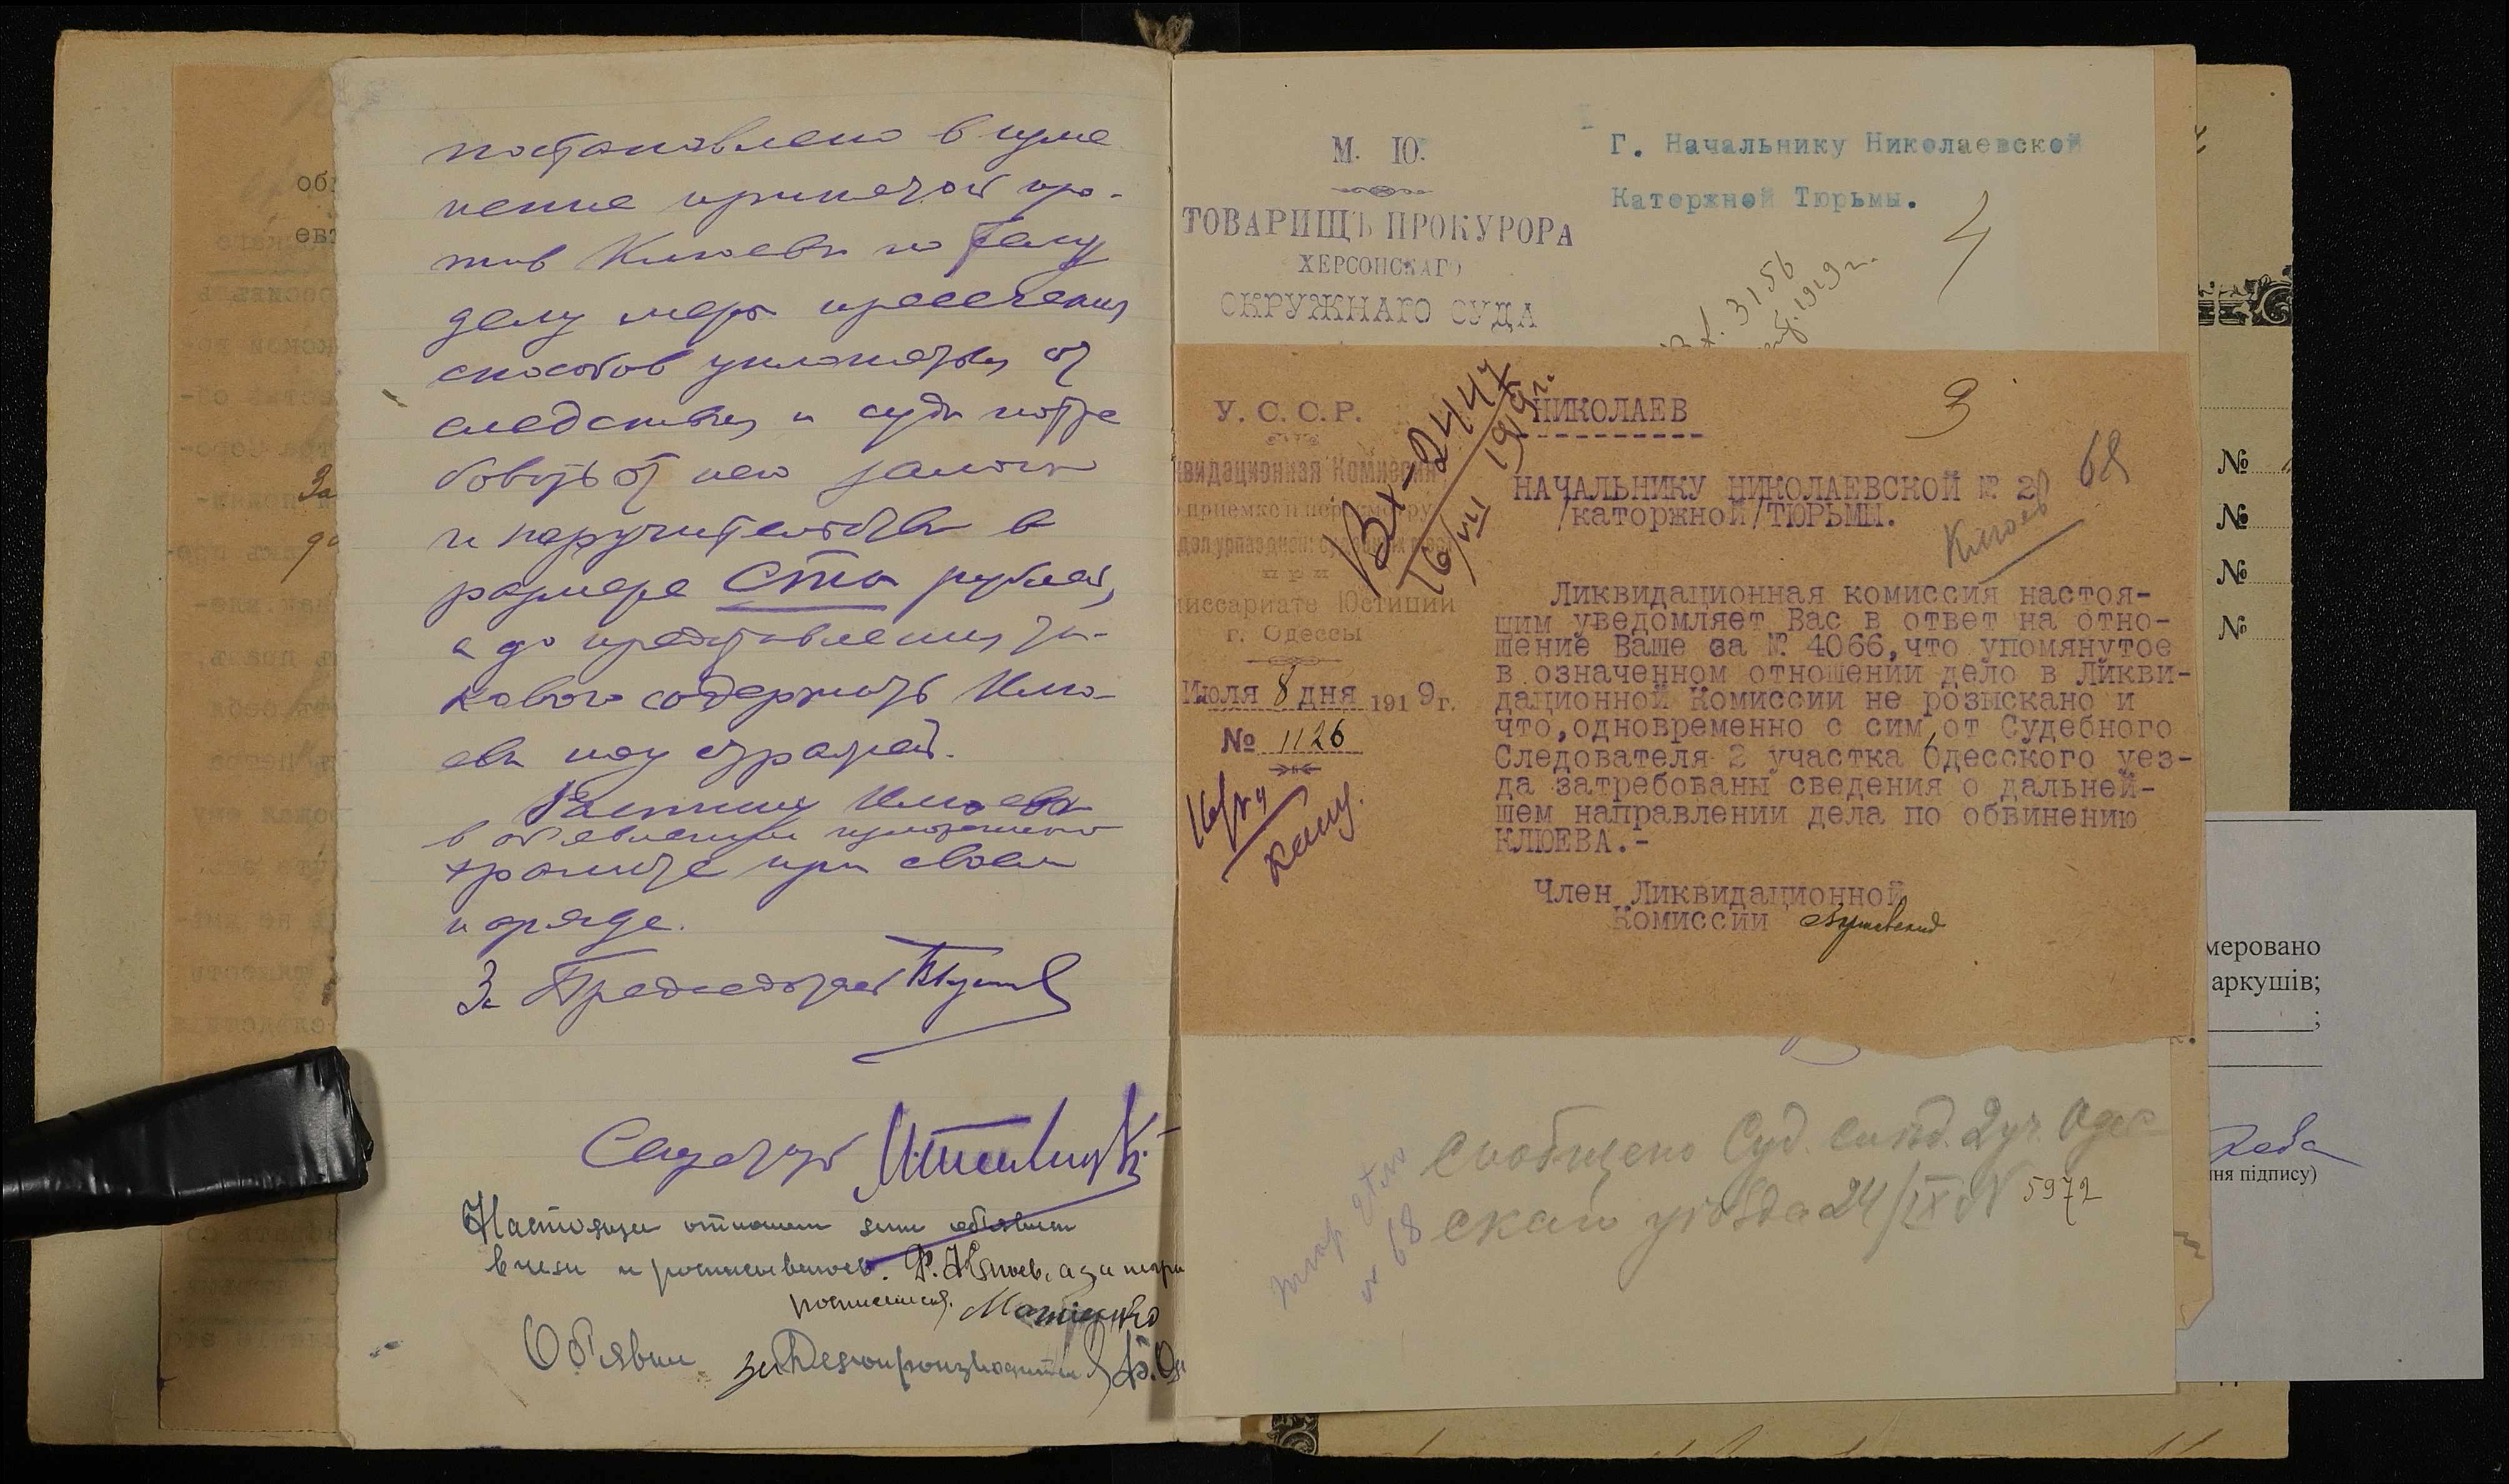 постановлено в изме
нение принятой про-
тив Клюева по сему
делу меры пресечения
способов уклоняться от
следствия и суда потре
бовать от него залога
и поручительства в
размере Ста рублей,
а до представления та-
кового содержать Клю-
ева под стражей.
Расписку Клюева
в об'явлении изложенного
хранить при своем
наряде.
За Председателя
Секретарь
Настоящее отношение мне об'явлено
в чем и расписываюсь. Ф. Клюев, а за негра
расписался. Матвиенко
Об'явил за Делопроизводителя
М. Ю.
ТОВАРИЩЪ ПРОКУРОРА
ХЕРСОНСКАГО
ОКРУЖНАГО СУДА
Г. Начальнику Николаевской
Каторжной Тюрьмы.
4
Вх. 3156
1919 г.
У. С. С. Р.
квидационная Комиссия
приемке и пересмотру
дел упраздненн. судебных
при
миссариате Юстиции
г. Одессы
Июля 8 дня 1919 г.
№ 1126
Вх-2447
16/VII 1919 г.
3
68
Клюев
НИКОЛАЕВ
НАЧАЛЬНИКУ НИКОЛАЕВСКОЙ № 2
/каторжной/ТЮРЬМЫ.
Ликвидационная комиссия настоя-
щим уведомляет Вас в ответ на отно-
шение Ваше за № 4066,что упомянутое
в означенном отношении дело в Ликви-
дационной Комиссии не розыскано и
что,одновременно с сим,от Судебного
Следователя 2 участка Одесского уез-
да затребованы сведения о дальней-
шем направлении дела по обвинению
КЛЮЕВА.-
Член Ликвидационной
Комиссии
Сообщено Суд. След. 2 уч. Одес
скаго уѣзда 24/IX № 5972
№ 68
об
ева
За
до
№
№
№
№
меровано
аркушів;
ння підпису)